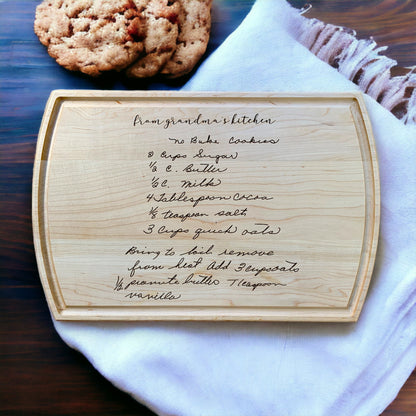 From grandma's kitchen
No Bake Cookies
2 Cups Sugar
1/2 C. Butter
1/2 C. Milk
4 Tablespoon Cocoa
1/8 teaspoon salt
3 Cups quick oats
Bring to boil remove
from heat Add 3 cups oats
1/2 peanute butter 1 teaspoon
vanilla